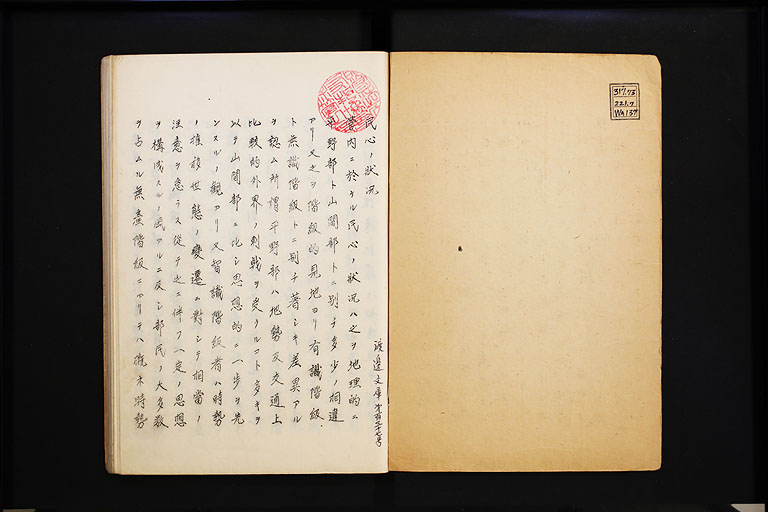 317.73
221.7
WA137
渡邊文庫
民心ノ狀況
管內ニ於ケル民心ノ狀況ハ之ヲ地理的ニ
平野部ト山間部トニ別チ多少ノ相違
アリ又之ヲ階級的見地ヨリ有識階級
ト無識階級トニ別チ著シキ差異アル
ヲ認ム所謂平野部ハ地勢及交通上
比較的外界ノ刺戟ヲ受クルコト多キヲ
以テ山間部ニ比シ思想的ニ一步ヲ先
ンスルノ觀アリ又智識階級者ハ時勢
ノ推移世態ノ變遷ニ對シテ相當ノ
注意ヲ怠ラス從テ之ニ伴フ一定ノ思想
ヲ構成スルノ風アルニ反シ部民ノ大多數
ヲ占ムル無產階級ニアリテハ概ネ時勢